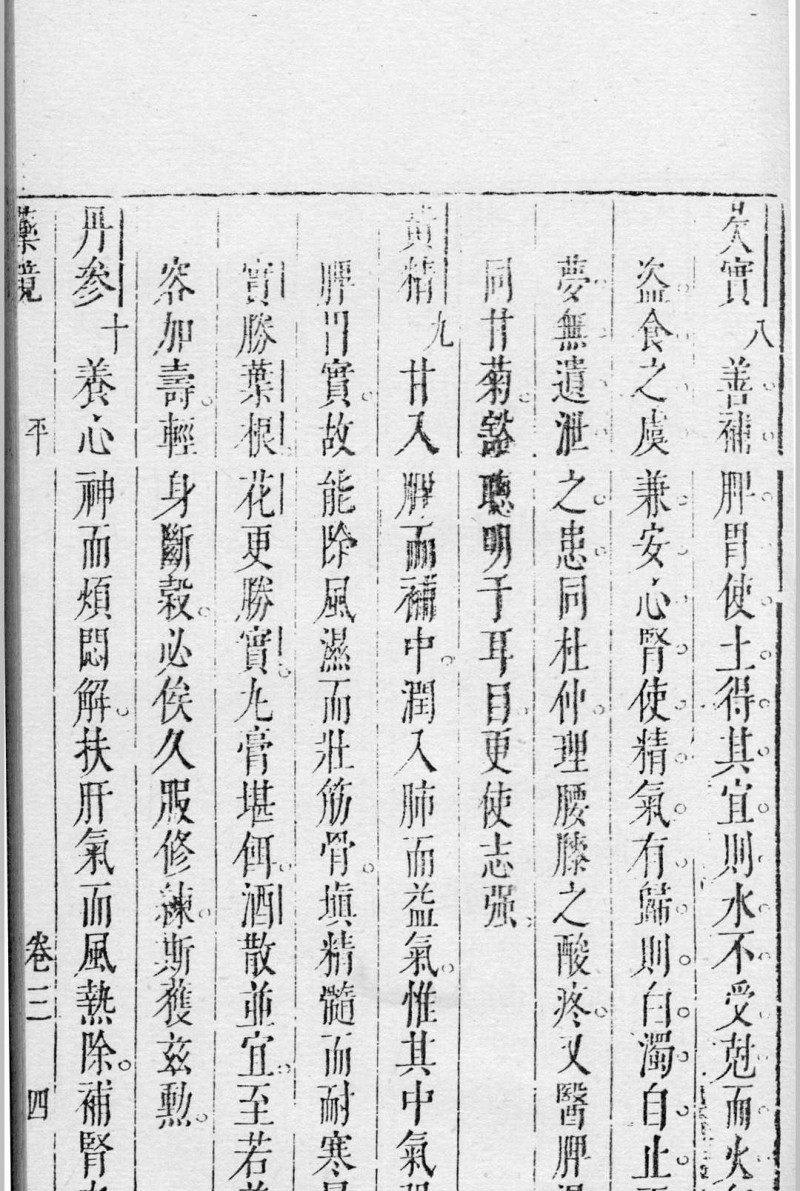 芡實八善補脾胃使土得其宜則水不受尅而火
盜食之虞兼安心腎使精氣有歸則白濁自止
夢無遺泄之患同杜仲理腰膝之酸疼又醫脾
同甘菊豁聰明于耳目更使志强
黃精九甘入脾而補中潤入肺而益氣惟其中氣
脾胃實故能除風濕而壯筋骨塡精髓而耐寒
實勝葉根花更勝實九膏堪餌酒散並宜至若
容加壽輕身斷穀必俟久服修練斯獲茲勲
丹參十養心神而煩悶解扶肝氣而風熱除補腎
藥鏡 平 卷三 四